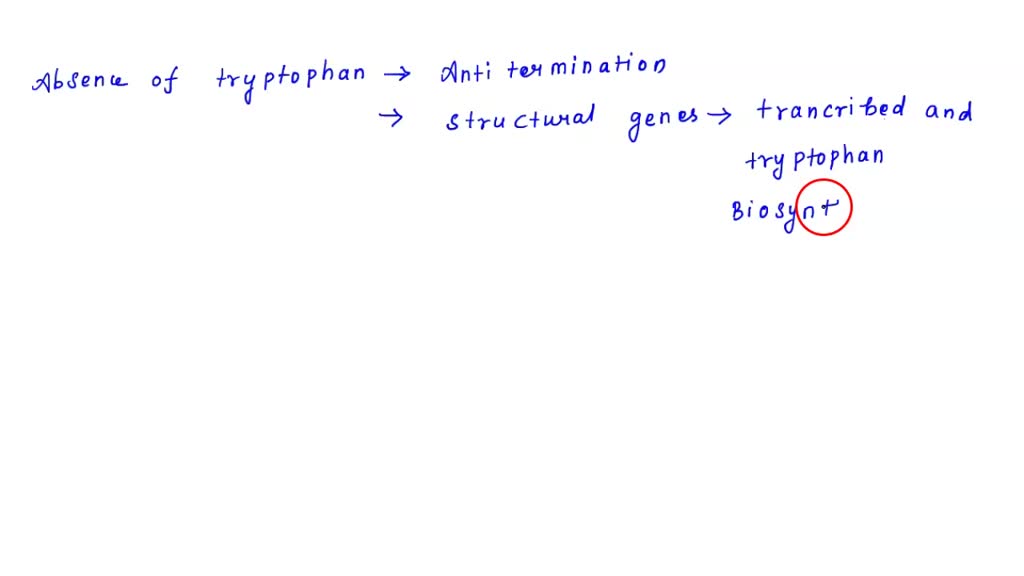 Absence of tryptophan → Anti termination
→ structural genes → trancribed and
tryptophan
Biosynt